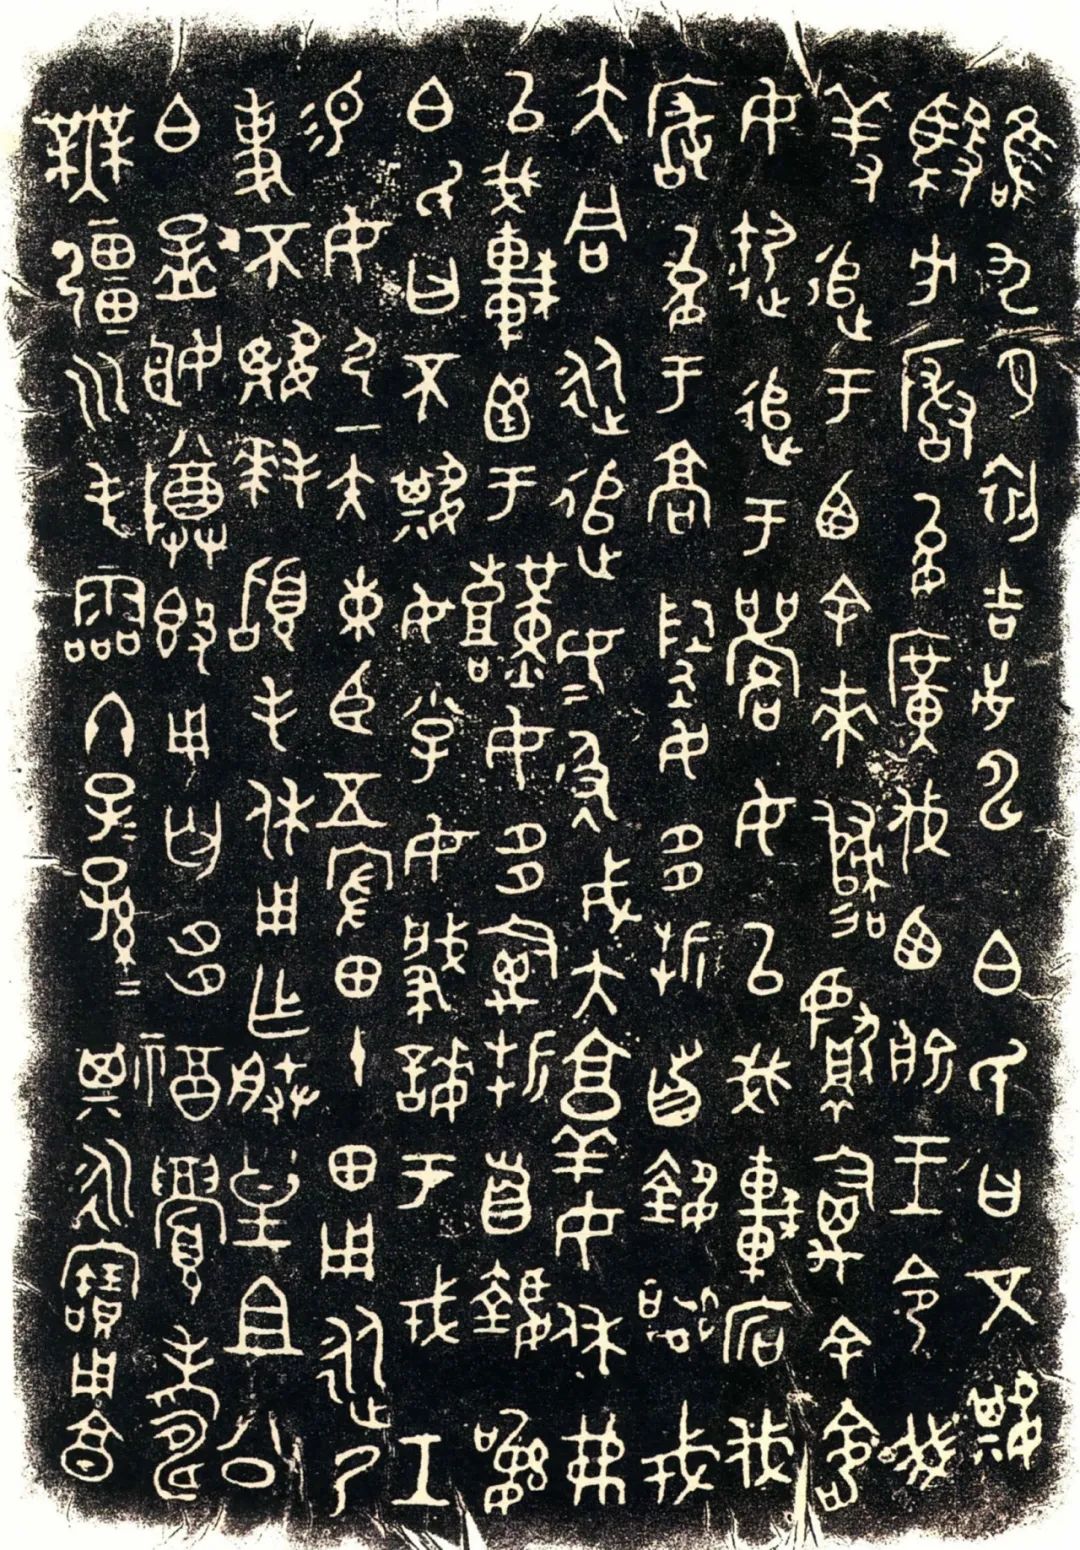 唯九月初吉戊申白氏曰不𡢁
馭方玁狁廣伐西俞王令我
羞追于西余來歸獻禽余命
女御追于䇎女以我車宕伐
玁狁于高陶女多折首執訊戎
大同從追女女及戎大敦搏女休弗
以我車圅于艱女多禽折首執訊
白氏曰不𡢁女小子女肇誨于戎工
易女弓一矢束臣五家田十田用從乃
事不𡢁拜𩒨手休用乍朕皇且公
白孟姬尊𣪘用匄多福眉壽
無疆永屯霝冬子子孫孫其永寶用享